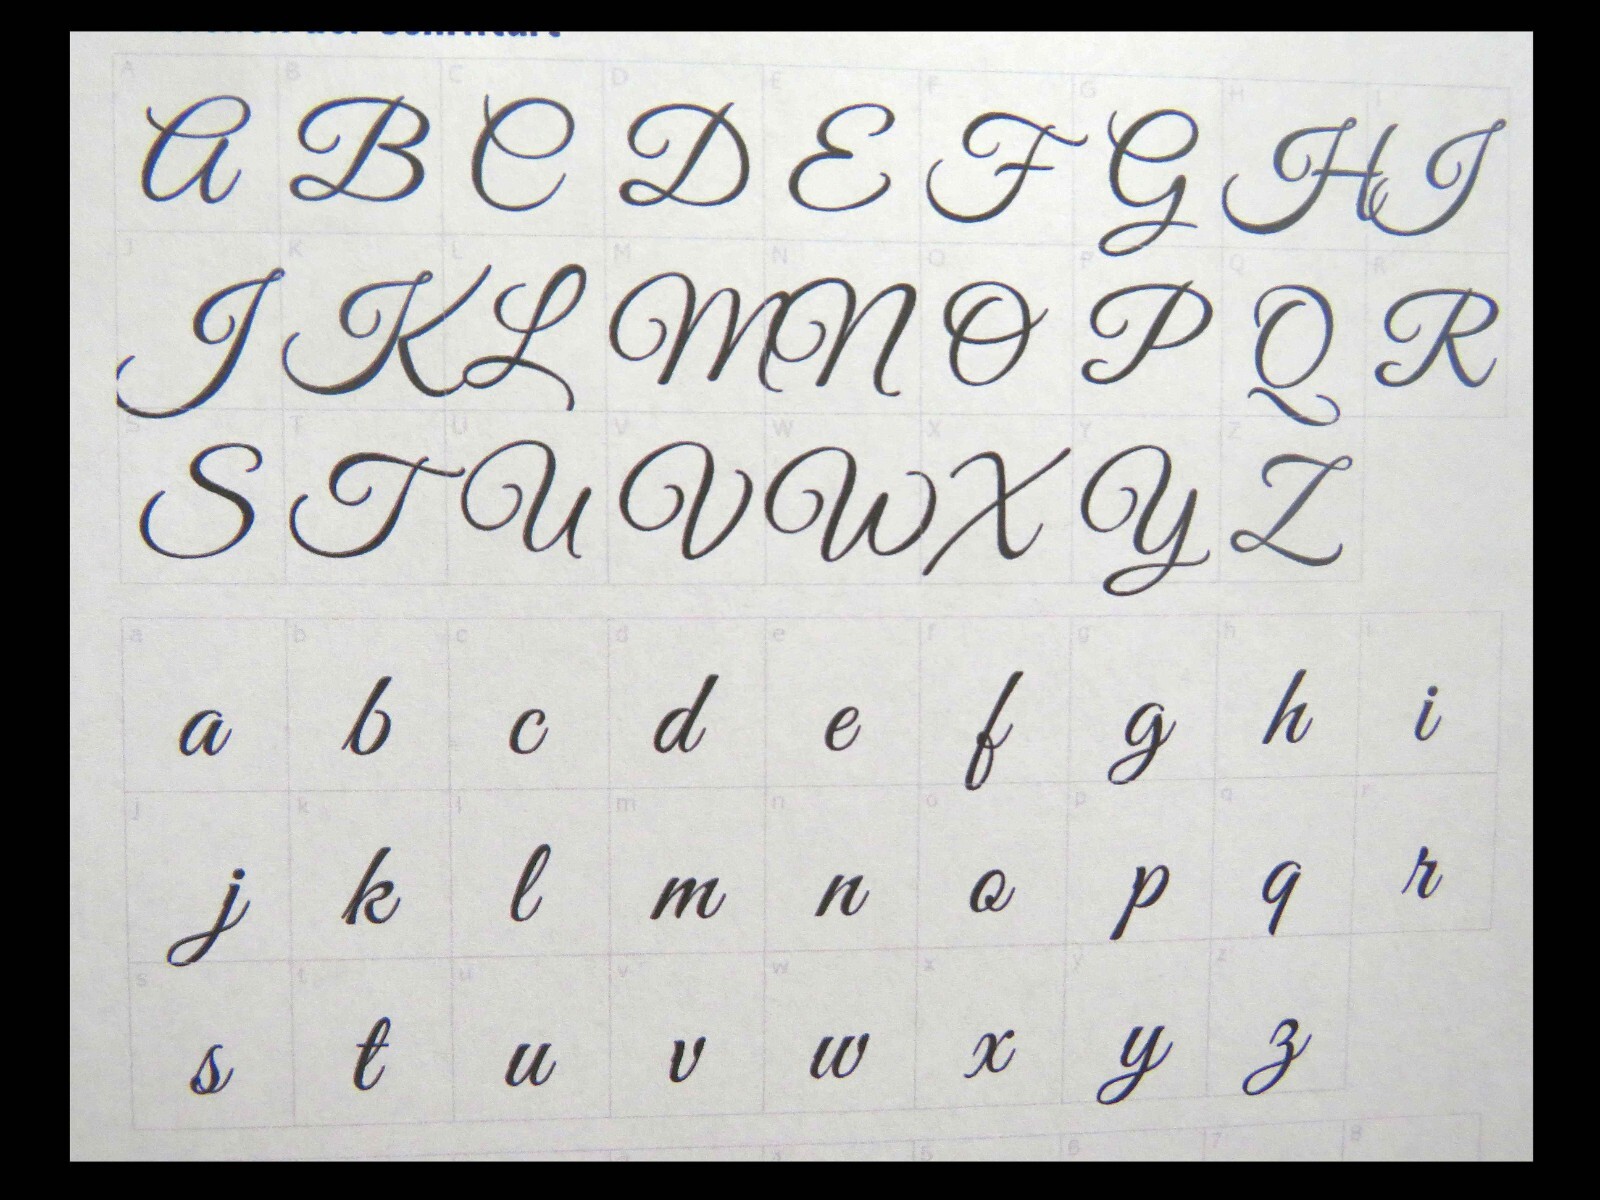 A B C D E F G H I
A B C D E F G H I
J K L M N O P Q R
J K L M N O P Q R
S T U V W X Y Z
S T U V W X Y Z
a b c d e f g h i
a b c d e f g h i
j k l m n o p q r
j k l m n o p q r
s t u v w x y z
s t u v w x y z
5 6 7 8